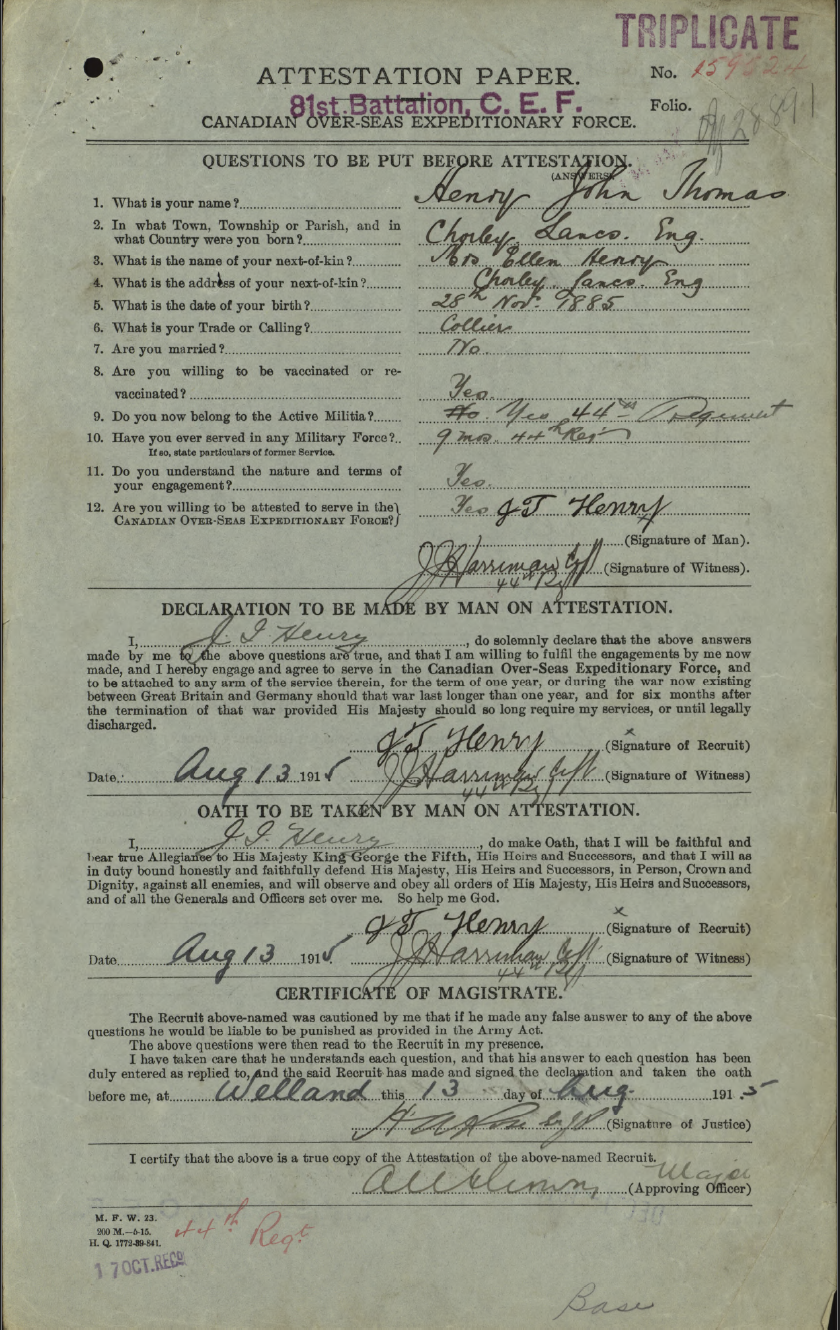 TRIPLICATE
ATTESTATION PAPER.
No. 159524
81st Battalion, C. E. F.
Folio.
CANADIAN OVER-SEAS EXPEDITIONARY FORCE.
QUESTIONS TO BE PUT BEFORE ATTESTATION.
(ANSWERS).
1. What is your name? Henry John Thomas
2. In what Town, Township or Parish, and in
what Country were you born? Chorley Lancs. Eng.
3. What is the name of your next-of-kin? Mrs Ellen Henry
4. What is the address of your next-of-kin? Chorley. Lancs. Eng
5. What is the date of your birth? 28th Nov. 1885
6. What is your Trade or Calling? Collier
7. Are you married? No.
8. Are you willing to be vaccinated or re-
vaccinated? Yes.
9. Do you now belong to the Active Militia? No. Yes 44th Regiment
10. Have you ever served in any Military Force? 9 mos. 44th Regt
If so, state particulars of former Service.
11. Do you understand the nature and terms of
your engagement? Yes.
12. Are you willing to be attested to serve in the
CANADIAN OVER-SEAS EXPEDITIONARY FORCE? Yes J T Henry
(Signature of Man).
J J Harriman Capt (Signature of Witness).
44th Rgt
DECLARATION TO BE MADE BY MAN ON ATTESTATION.
I, J. T Henry, do solemnly declare that the above answers
made by me to the above questions are true, and that I am willing to fulfil the engagements by me now
made, and I hereby engage and agree to serve in the Canadian Over-Seas Expeditionary Force, and
to be attached to any arm of the service therein, for the term of one year, or during the war now existing
between Great Britain and Germany should that war last longer than one year, and for six months after
the termination of that war provided His Majesty should so long require my services, or until legally
discharged.
J T Henry (Signature of Recruit)
Date Aug 13 1915 J J Harriman Capt (Signature of Witness)
44th Rgt
OATH TO BE TAKEN BY MAN ON ATTESTATION.
I, J. T. Henry, do make Oath, that I will be faithful and
bear true Allegiance to His Majesty King George the Fifth, His Heirs and Successors, and that I will as
in duty bound honestly and faithfully defend His Majesty, His Heirs and Successors, in Person, Crown and
Dignity, against all enemies, and will observe and obey all orders of His Majesty, His Heirs and Successors,
and of all the Generals and Officers set over me. So help me God.
J T Henry (Signature of Recruit)
Date Aug 13 1915 J J Harriman Capt (Signature of Witness)
44th Rgt
CERTIFICATE OF MAGISTRATE.
The Recruit above-named was cautioned by me that if he made any false answer to any of the above
questions he would be liable to be punished as provided in the Army Act.
The above questions were then read to the Recruit in my presence.
I have taken care that he understands each question, and that his answer to each question has been
duly entered as replied to, and the said Recruit has made and signed the declaration and taken the oath
before me, at Welland this 13 day of Aug. 1915
(Signature of Justice)
I certify that the above is a true copy of the Attestation of the above-named Recruit.
Major
(Approving Officer)
M. F. W. 23.
200 M.—6-15.
H. Q. 1772-39-841.
44th Regt
17 OCT. REC'D
Base